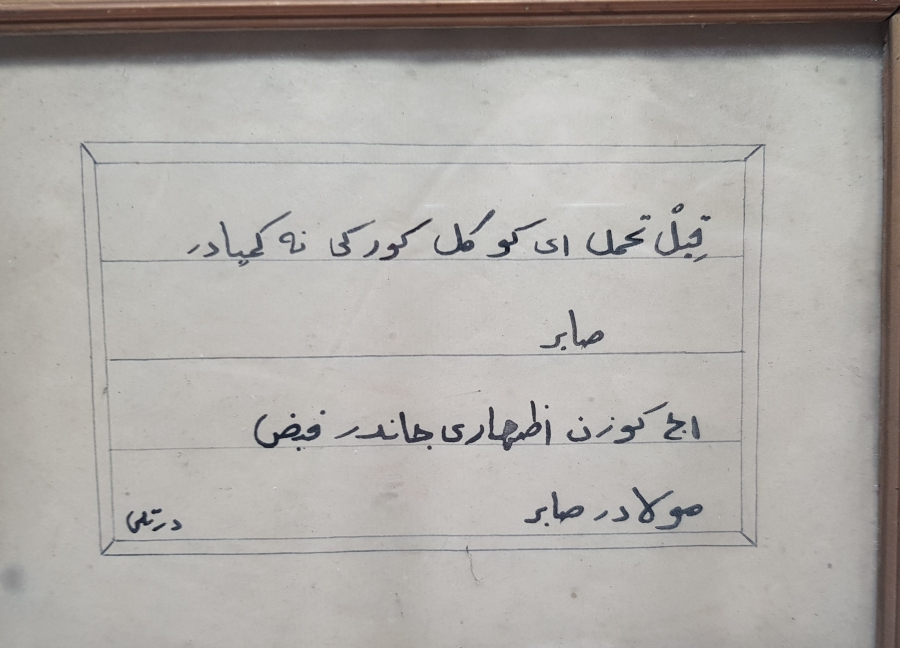 قِبلْ تحمل ای کوکل کورکی نه کمیادر
صابر
اچ کوزن اظهاری جاندر فیض
مولادر صابر
درتلی